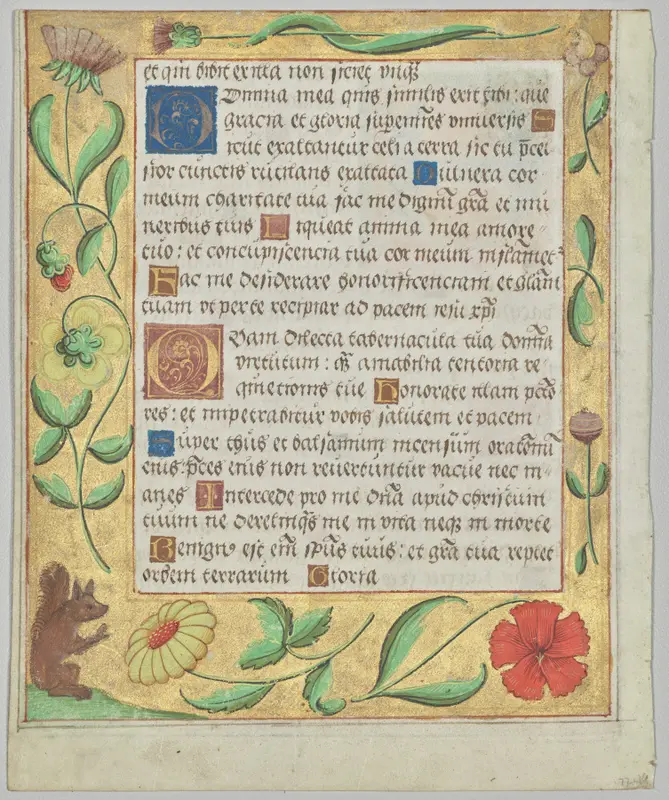 et qui bibit ex illa non siciet unq̃
Domina mea quis similis erit tibi: que
gracia et gloria superemines universis S
icut exaltantur celi a terra sic tu p̃cel
sior cunctis rutilans exaltata Vulnera cor
meum charitate tua fac me dignũ grã et mu
neribus tuis Liqueat anima mea amore
tuo: et concupiscencia tua cor meum inflamet
Fac me desiderare honorificenciam et gl̃am
tuam ut per te recipiar ad pacem iesu xp̃i
Quam dilecta tabernacula tua domña
virtutum: q̃ amabilia tentoria re
quietionis tue Honorate illam pctõ
res: et impetrabitur vobis salutem et pacem
Super thus et balsamum incensum orationũ
eius: p̃ces eius non revertuntur vacue nec in
anes Intercede pro me dña apud christum
tuum ne derelinq̃s me in vita neqz in morte
Benignꝰ est em̃ spũs tuus: et grã tua replet
orbem terrarum Gloria